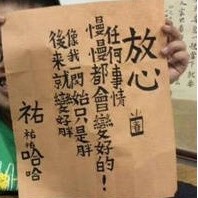 放心
任何事情
慢慢都會變好的！
像我一開始只是胖
後來就變好胖
祐
祐祐哈哈